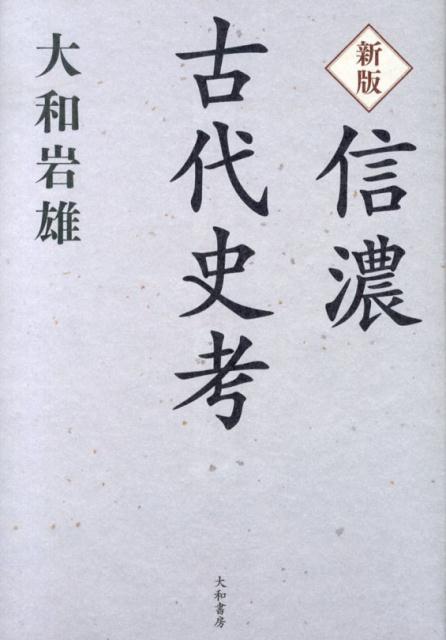 新版
信濃
古代史考
大和岩雄
大和書房